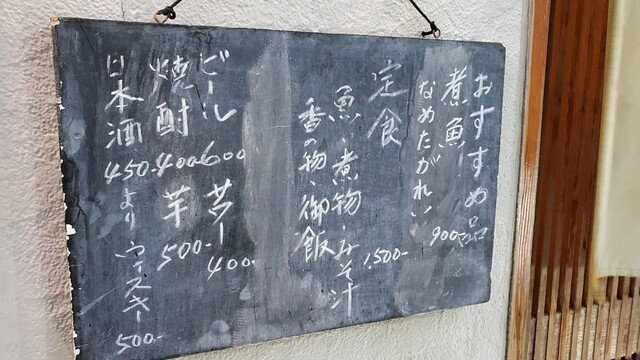 おすすめ品
煮魚
なめたがれい
900-
定食
魚、煮物、みそ汁
香の物、御飯
1.500-
ビール 600 サワー 400-
焼酎 400- 芋 500-
日本酒 450-より ウィスキー 500-